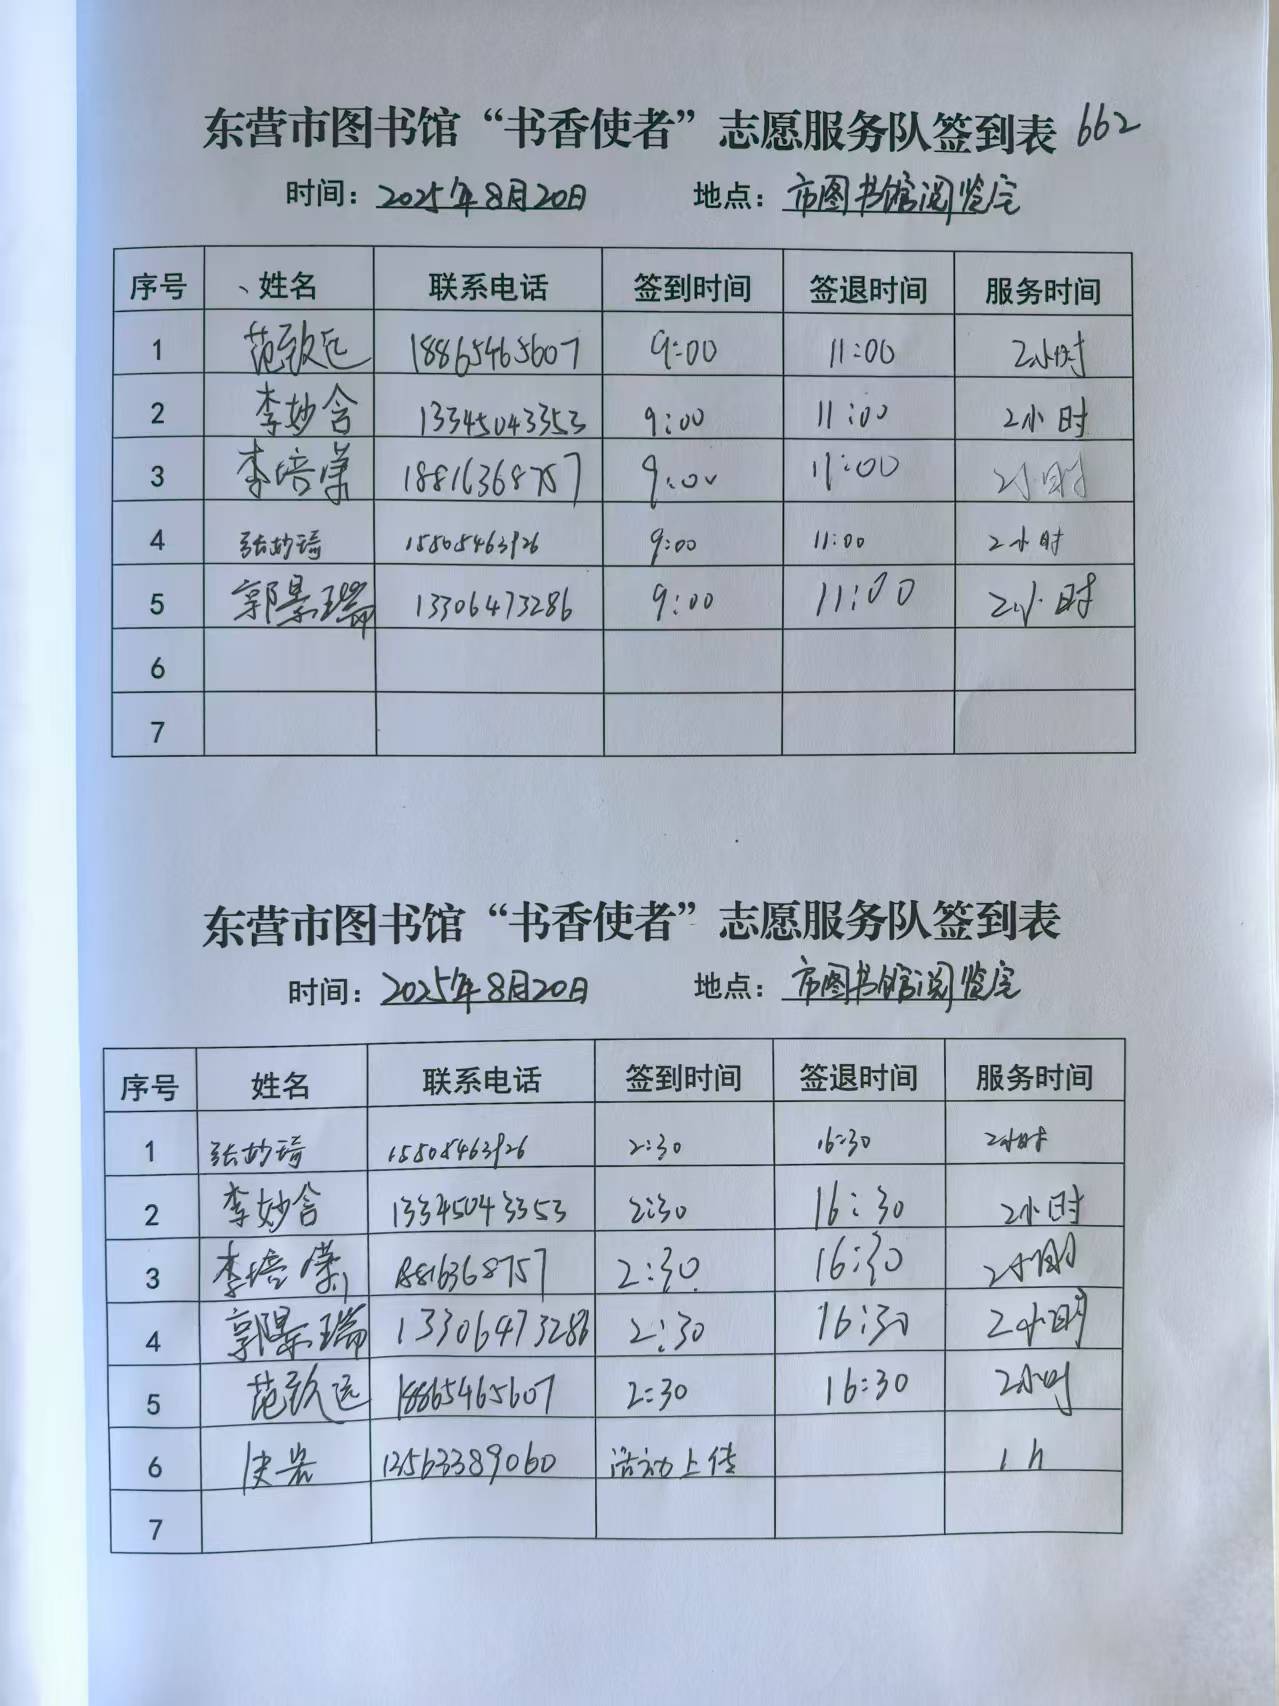 东营市图书馆“书香使者”志愿服务队签到表 662
时间：2025年8月20日 地点：市图书馆阅览室
序号 姓名 联系电话 签到时间 签退时间 服务时间
1 范致远 18865465607 9:00 11:00 2小时
2 李妙含 13345043353 9:00 11:00 2小时
3 李培 18816368757 9:00 11:00 2小时
4 张妙琦 15505463926 9:00 11:00 2小时
5 郭景瑞 13306473286 9:00 11:00 2小时
6
7
东营市图书馆“书香使者”志愿服务队签到表
时间：2025年8月20日 地点：市图书馆阅览室
序号 姓名 联系电话 签到时间 签退时间 服务时间
1 张妙琦 15505463926 2:30 16:30 2小时
2 李妙含 13345043353 2:30 16:30 2小时
3 李培 18816368757 2:30 16:30 2小时
4 郭景瑞 13306473286 2:30 16:30 2小时
5 范致远 18865465607 2:30 16:30 2小时
6 13563389060 活动上传 1h
7